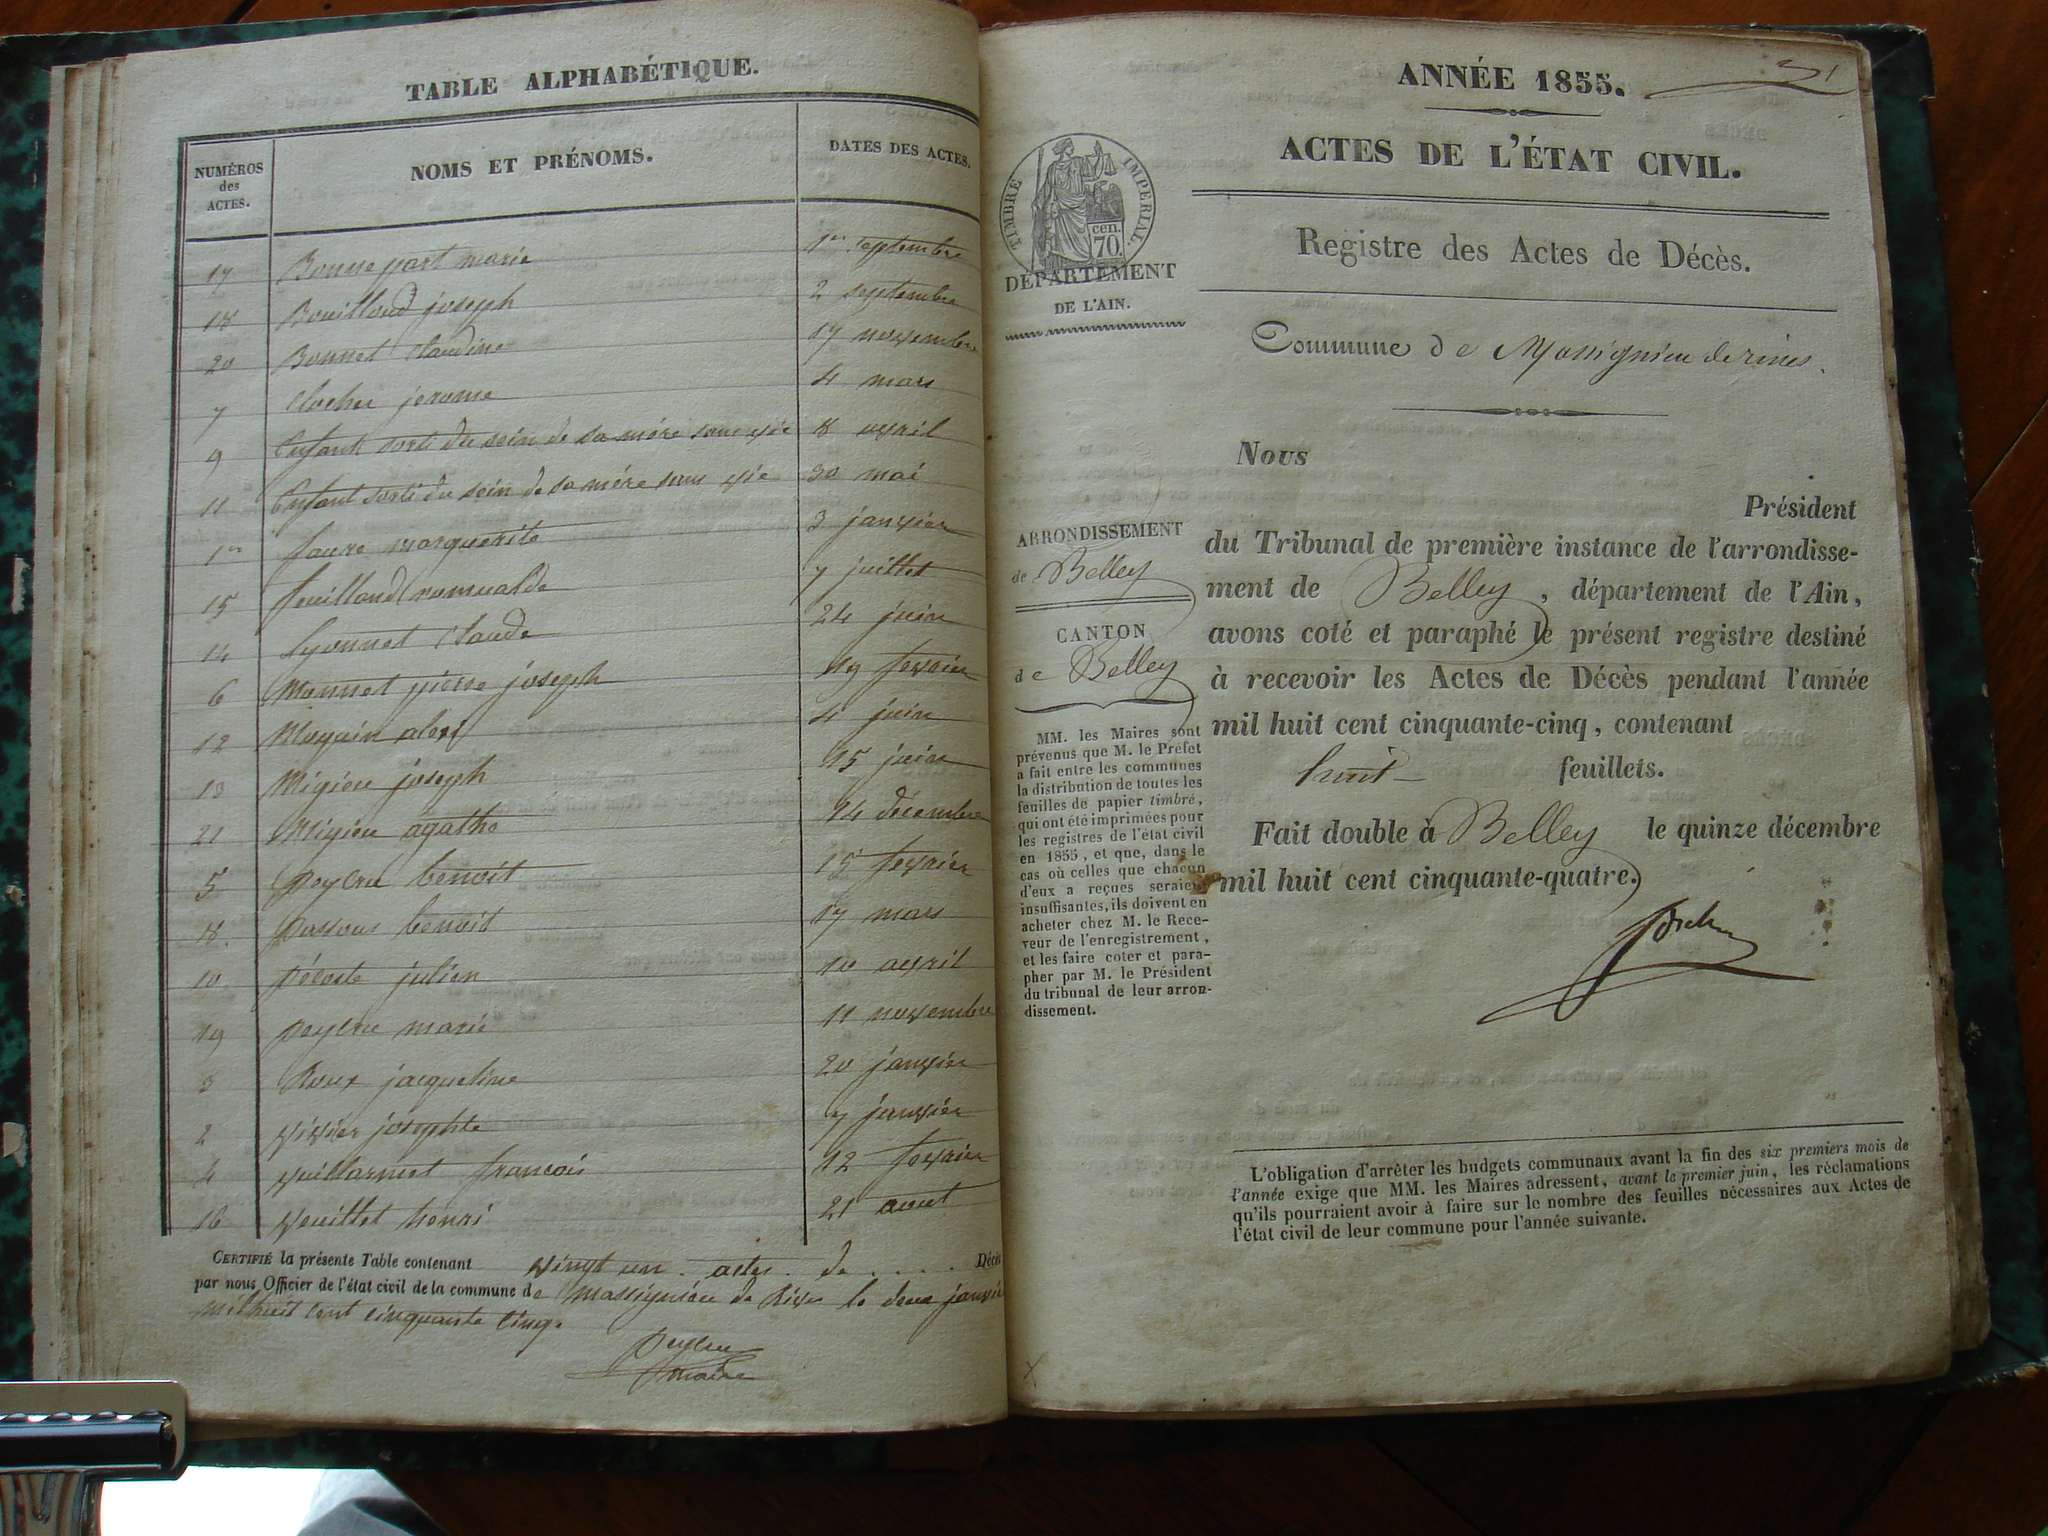 TABLE ALPHABÉTIQUE.
NUMÉROS des ACTES. NOMS ET PRÉNOMS. DATES DES ACTES.
17 Bonnepart marie 1er septembre
18 Bouilloud joseph 2 septembre
20 Bonnet Claudine 17 novembre
7 Clocher jerome 4 mars
9 Enfant sorti du sein de sa mére sans vie 8 avril
11 Enfant sorti du sein de sa mére sans vie 30 mai
1er faure marguerite 3 janvier
15 feuilland romualde 7 juillet
14 Lyonnet Claude 24 juin
6 Monnet pierre joseph 19 fevrier
12 alexi 4 juin
13 Migieu joseph 15 juin
21 Migieu agathe 14 décembre
5 peyzeu benoit 15 fevrier
8. benoit 17 mars
10 julien 10 avril
19 peyzeu marie 11 novembre
3 Roux jacqueline 20 janvier
2 vivier josephte 7 janvier
4 vuillermet francois 12 fevrier
16 vouillet henri 21 aout
CERTIFIÉ la présente Table contenant vingt un actes de .... Décès
par nous Officier de l'état civil de la commune de Massignieu de Rives le deux janvi
mil huit cent cinquante cinq.
maire
1
ANNÉE 1855.
ACTES DE L'ÉTAT CIVIL.
TIMBRE IMPÉRIAL.
cen.
70.
DÉPARTEMENT
DE L'AIN.
Registre des Actes de Décès.
Commune de Massignieu de rives.
Nous
Président
ARRONDISSEMENT
de Belley
CANTON
de Belley
du Tribunal de première instance de l'arrondisse-
ment de Belley, département de l'Ain,
avons coté et paraphé le présent registre destiné
à recevoir les Actes de Décès pendant l'année
mil huit cent cinquante-cinq, contenant
huit feuillets.
Fait double à Belley le quinze décembre
mil huit cent cinquante-quatre.
MM. les Maires sont
prévenus que M. le Préfet
a fait entre les communes
la distribution de toutes les
feuilles de papier timbré,
qui ont été imprimées pour
les registres de l'état civil
en 1855, et que, dans le
cas où celles que chacun
d'eux a reçues seraient
insuffisantes, ils doivent en
acheter chez M. le Rece-
veur de l'enregistrement,
et les faire coter et para-
pher par M. le Président
du tribunal de leur arron-
dissement.
L'obligation d'arrêter les budgets communaux avant la fin des six premiers mois de
l'année exige que MM. les Maires adressent, avant le premier juin, les réclamations
qu'ils pourraient avoir à faire sur le nombre des feuilles nécessaires aux Actes de
l'état civil de leur commune pour l'année suivante.